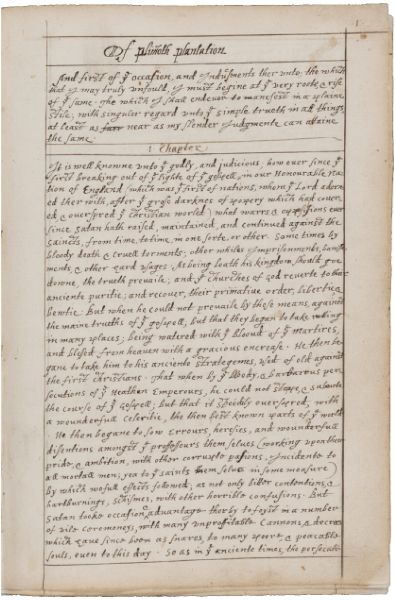 1.
Of plimoth plantation
And first of yͤ occasion, and Indusments ther unto; the which
that I may truly unfould, I must begine at yͤ very roote & rise
of yͤ same. The which I shall endevor to manefest in a plaine
stile; with singuler regard unto yͤ simple trueth in all things,
at least as near as my slender Judgmente can attaine
the same.
1 Chapter
It is well knowne unto yͤ godly, and judicious, how ever since yͤ
first breaking out of yͤ lighte of yͤ gospell, in our Honourable Na-
tion of England (which was yͤ first of nations, whom yͤ Lord adorn-
ed ther with, after yͤ grose darknes of popery which had cover-
ed & overspred yͤ christian world) what warrs, & oppossions ever
since satan hath raised, maintained, and continued against the
saincts, from time, to time, in one sorte, or other. Some times by
bloody death & cruell torments, other whiles Imprisonments, banish-
ments, & other hard usages. As being loath his kingdom should goe
downe, the trueth prevaile; and yͤ churches of god reverte to their
anciente puritie; and recover, their primative order, libertie, &
bewtie. But when he could not prevaile by these means, against
the maine trueths of yͤ gospell, but that they began to take rootting
in many places; being watered with yͤ bloud of yͤ martires,
and blesed from heaven with a gracious encrease. He then be-
gane to take him to his anciente strategemes, used of old against
the first christians. That when by yͤ bloody, & barbarous per-
secutions of yͤ Heathen Emperours, he could not stoppe, & subuerte
the course of yͤ gospell; but that it speedily overspred, with
a wounderfull celeritie, the then best known parts of yͤ world.
He then begane to sow errours, heresies, and wounderfull
disentions amongst yͤ proffessours them selves (working upon their
pride, & ambition, with other corrupte pasions, Incidente to
all mortall men; yea to yͤ saints them selves in some measure)
by which wofull effects followed; as not only bitter contentions, &
hartburnings, schismes, with other horrible confusions. But
satan tooke occasion & advantage therby to foyst in a number
of vile ceremoneys, with many unproffitable Cannons, & decrees
which have since been as snares, to many poore, & peaceable
souls, even to this day. So as in yͤ anciente times, the persecuti-